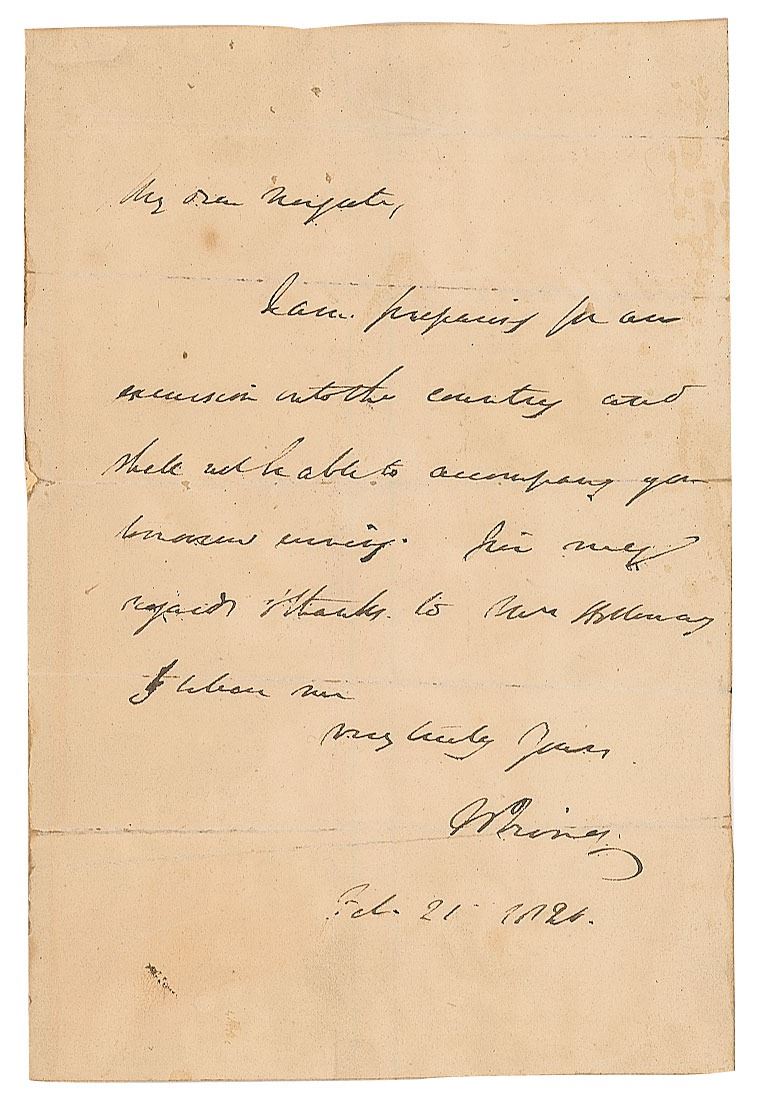 My dear Newgate,
I am preparing for an
excursion into the country and
shall not be able to accompany you
tomorrow evening. Give my
regards & thanks to Mrs Holloway
& believe me
very truly yours
W Irving
Feb. 21 1826.